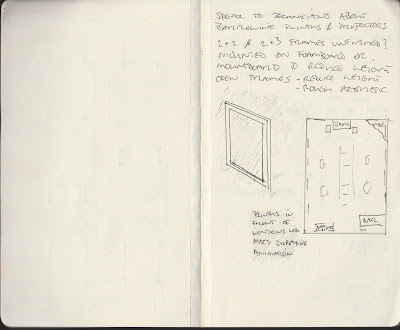 SPEAK TO TECHNICIANS ABOUT
BORROWING PLINTHS & PROJECTORS
2x2 & 2x3 FRAMES UNFINISHED?
MOUNTED ON FOAMBOARD OR
MOUNTBOARD TO REDUCE WEIGHT
OPEN FRAMES - REDUCE WEIGHT
- ROUGH AESTHETIC
PLINTHS IN
FRONT OF
WINDOWS
ANIMATION
BAR